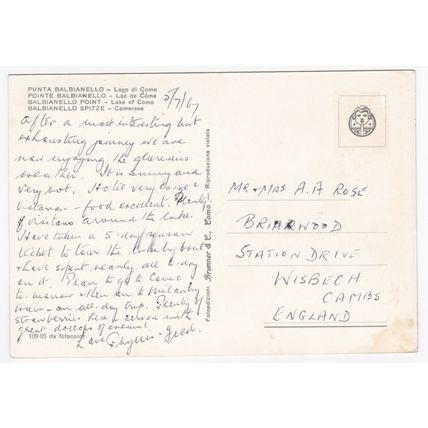 PUNTA BALBIANELLO – Lago di Como
POINTE BALBIANELLO – Lac de Côme
BALBIANELLO POINT – Lake of Como
BALBIANELLO SPITZE – Comersee
5/7/67
After a most interesting but
exhausting journey we are
now enjoying the glorious
weather. It is sunny and
very hot. Hotel very large &
Victorian – food excellent. Plenty
of visitors around the lake.
Have taken a 5-day season
ticket to tour the lake by boat
& have spent nearly all today
on it. Plan to go to Como
to-morrow & then on to Milan by
train – an all-day trip. Plenty of
strawberries here – served with
great dollops of cream!
Love Phyllis & Fred.
109-05 da fotocolor
Fotoedizioni Brunner & C., Como – Riproduzione vietata
MR & MRS A. A ROSE
BRIARWOOD
STATION DRIVE
WISBECH
CAMBS
ENGLAND